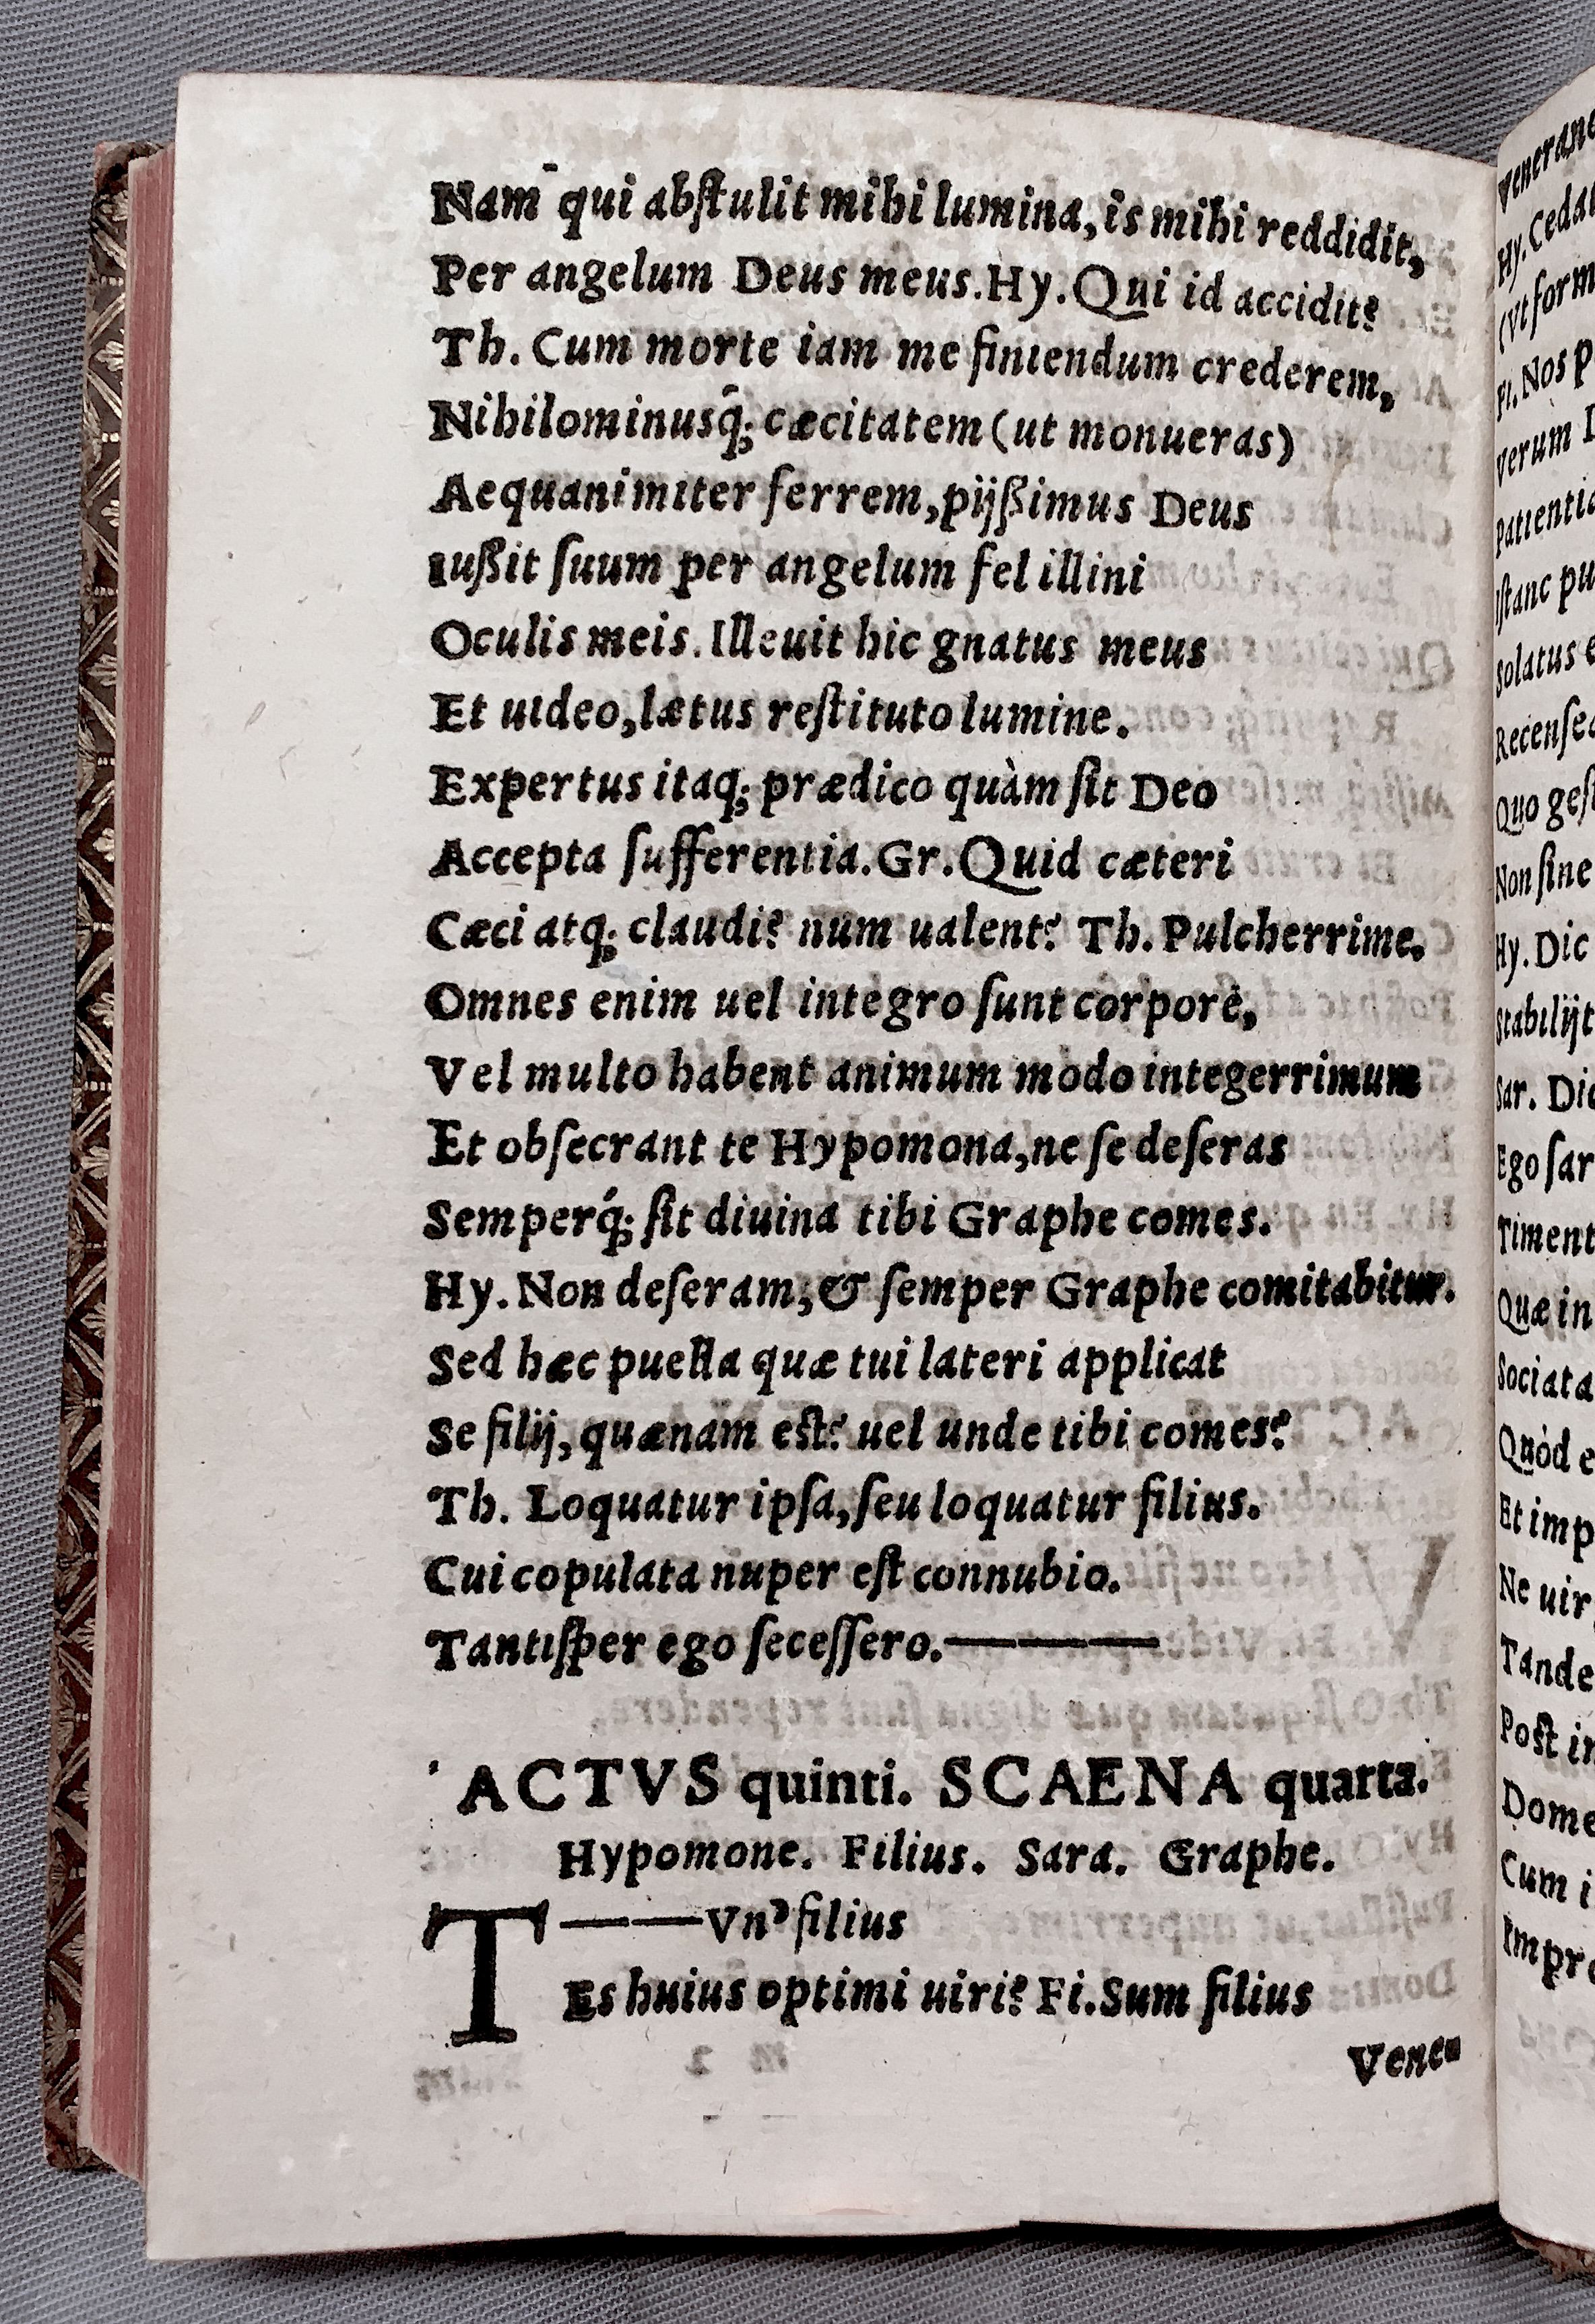 Nam qui abſtulit mihi lumina, is mihi reddidit,
Per angelum Deus meus. Hy. Qui id accidit?
Th. Cum morte iam me finiendum crederem,
Nihilominusq́; cæcitatem (ut monueras)
Aequanimiter ferrem, pijßimus Deus
Iußit ſuum per angelum fel illini
Oculis meis. Illeuit hic gnatus meus
Et uideo, lætus reſtituto lumine.
Expertus itaq; prædico quàm ſit Deo
Accepta ſufferentia. Gr. Quid cæteri
Cæci atq; claudi? num ualent? Th. Pulcherrime.
Omnes enim uel integro ſunt corpore,
Vel multo habent animum modo integerrimum
Et obſecrant te Hypomona, ne ſe deſeras
Semperq́; ſit diuina tibi Graphe comes.
Hy. Non deſeram, & ſemper Graphe comitabitur.
Sed hæc puella quæ tui lateri applicat
Se filij, quænam eſt? uel unde tibi comes?
Th. Loquatur ipſa, ſeu loquatur filius.
Cui copulata nuper eſt connubio.
Tantiſper ego ſeceſſero. ———
ACTVS quinti. SCAENA quarta.
Hypomone. Filius. Sara. Graphe.
T ——Vnꝰ filius
Es huius optimi uiri? Fi. Sum filius
Vene
Hy. Cedat
(Vt form
Fi. Nos p
Verum
Patientia
Iſtanc pu
Solatus e
Recenſe
Quo geſ
Non ſine
Hy. Dic
Stabilijt
Sar. Dic
Ego ſar
Timent
Quæ in
Sociata
Quòd e
Et imp
Ne uir
Tande
Poſt in
Dome
Cum i
Impro